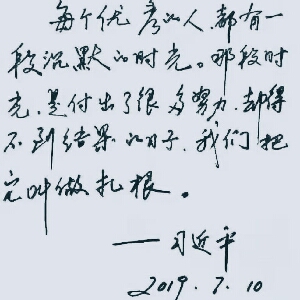 每个优秀的人,都有一
段沉默的时光。那段时
光,是付出了很多努力,却得
不到结果的日子,我们把
它叫做扎根。
——习近平
2019.7.10